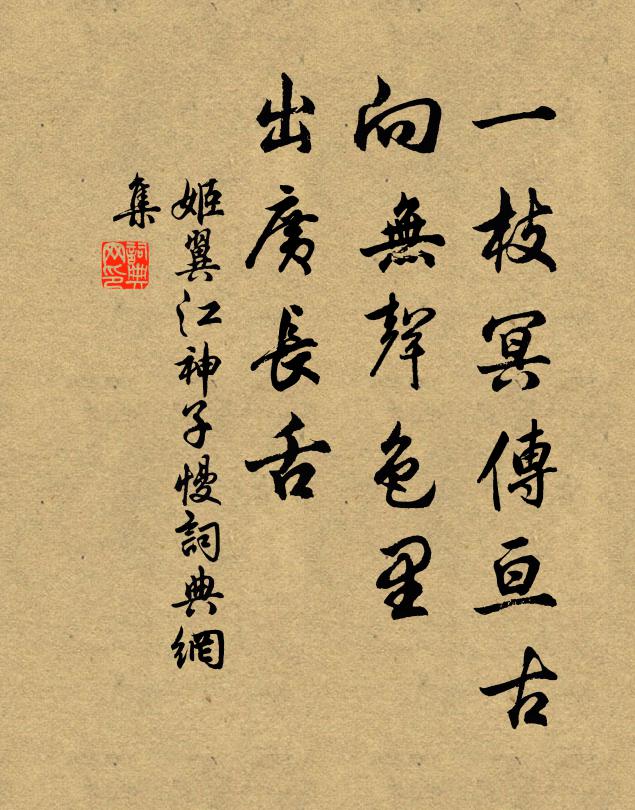 一枝冥傳亘古
向無聲色里
出廣長舌
姬翼江神子慢詞典網
集
詞典
网印